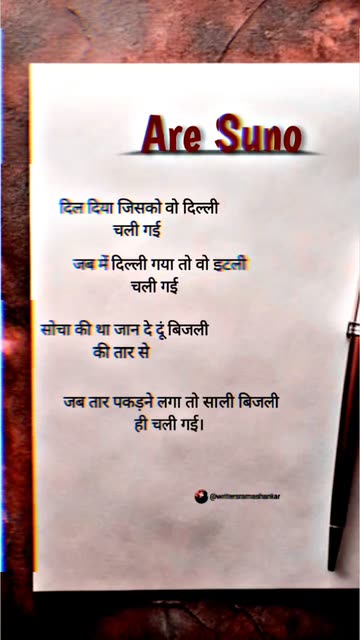 Are Suno
दिल दिया जिसको वो दिल्ली
चली गई
जब में दिल्ली गया तो वो इटली
चली गई
सोचा की था जान दे दूं बिजली
की तार से
जब तार पकड़ने लगा तो साली बिजली
ही चली गई।
@writersramashankar